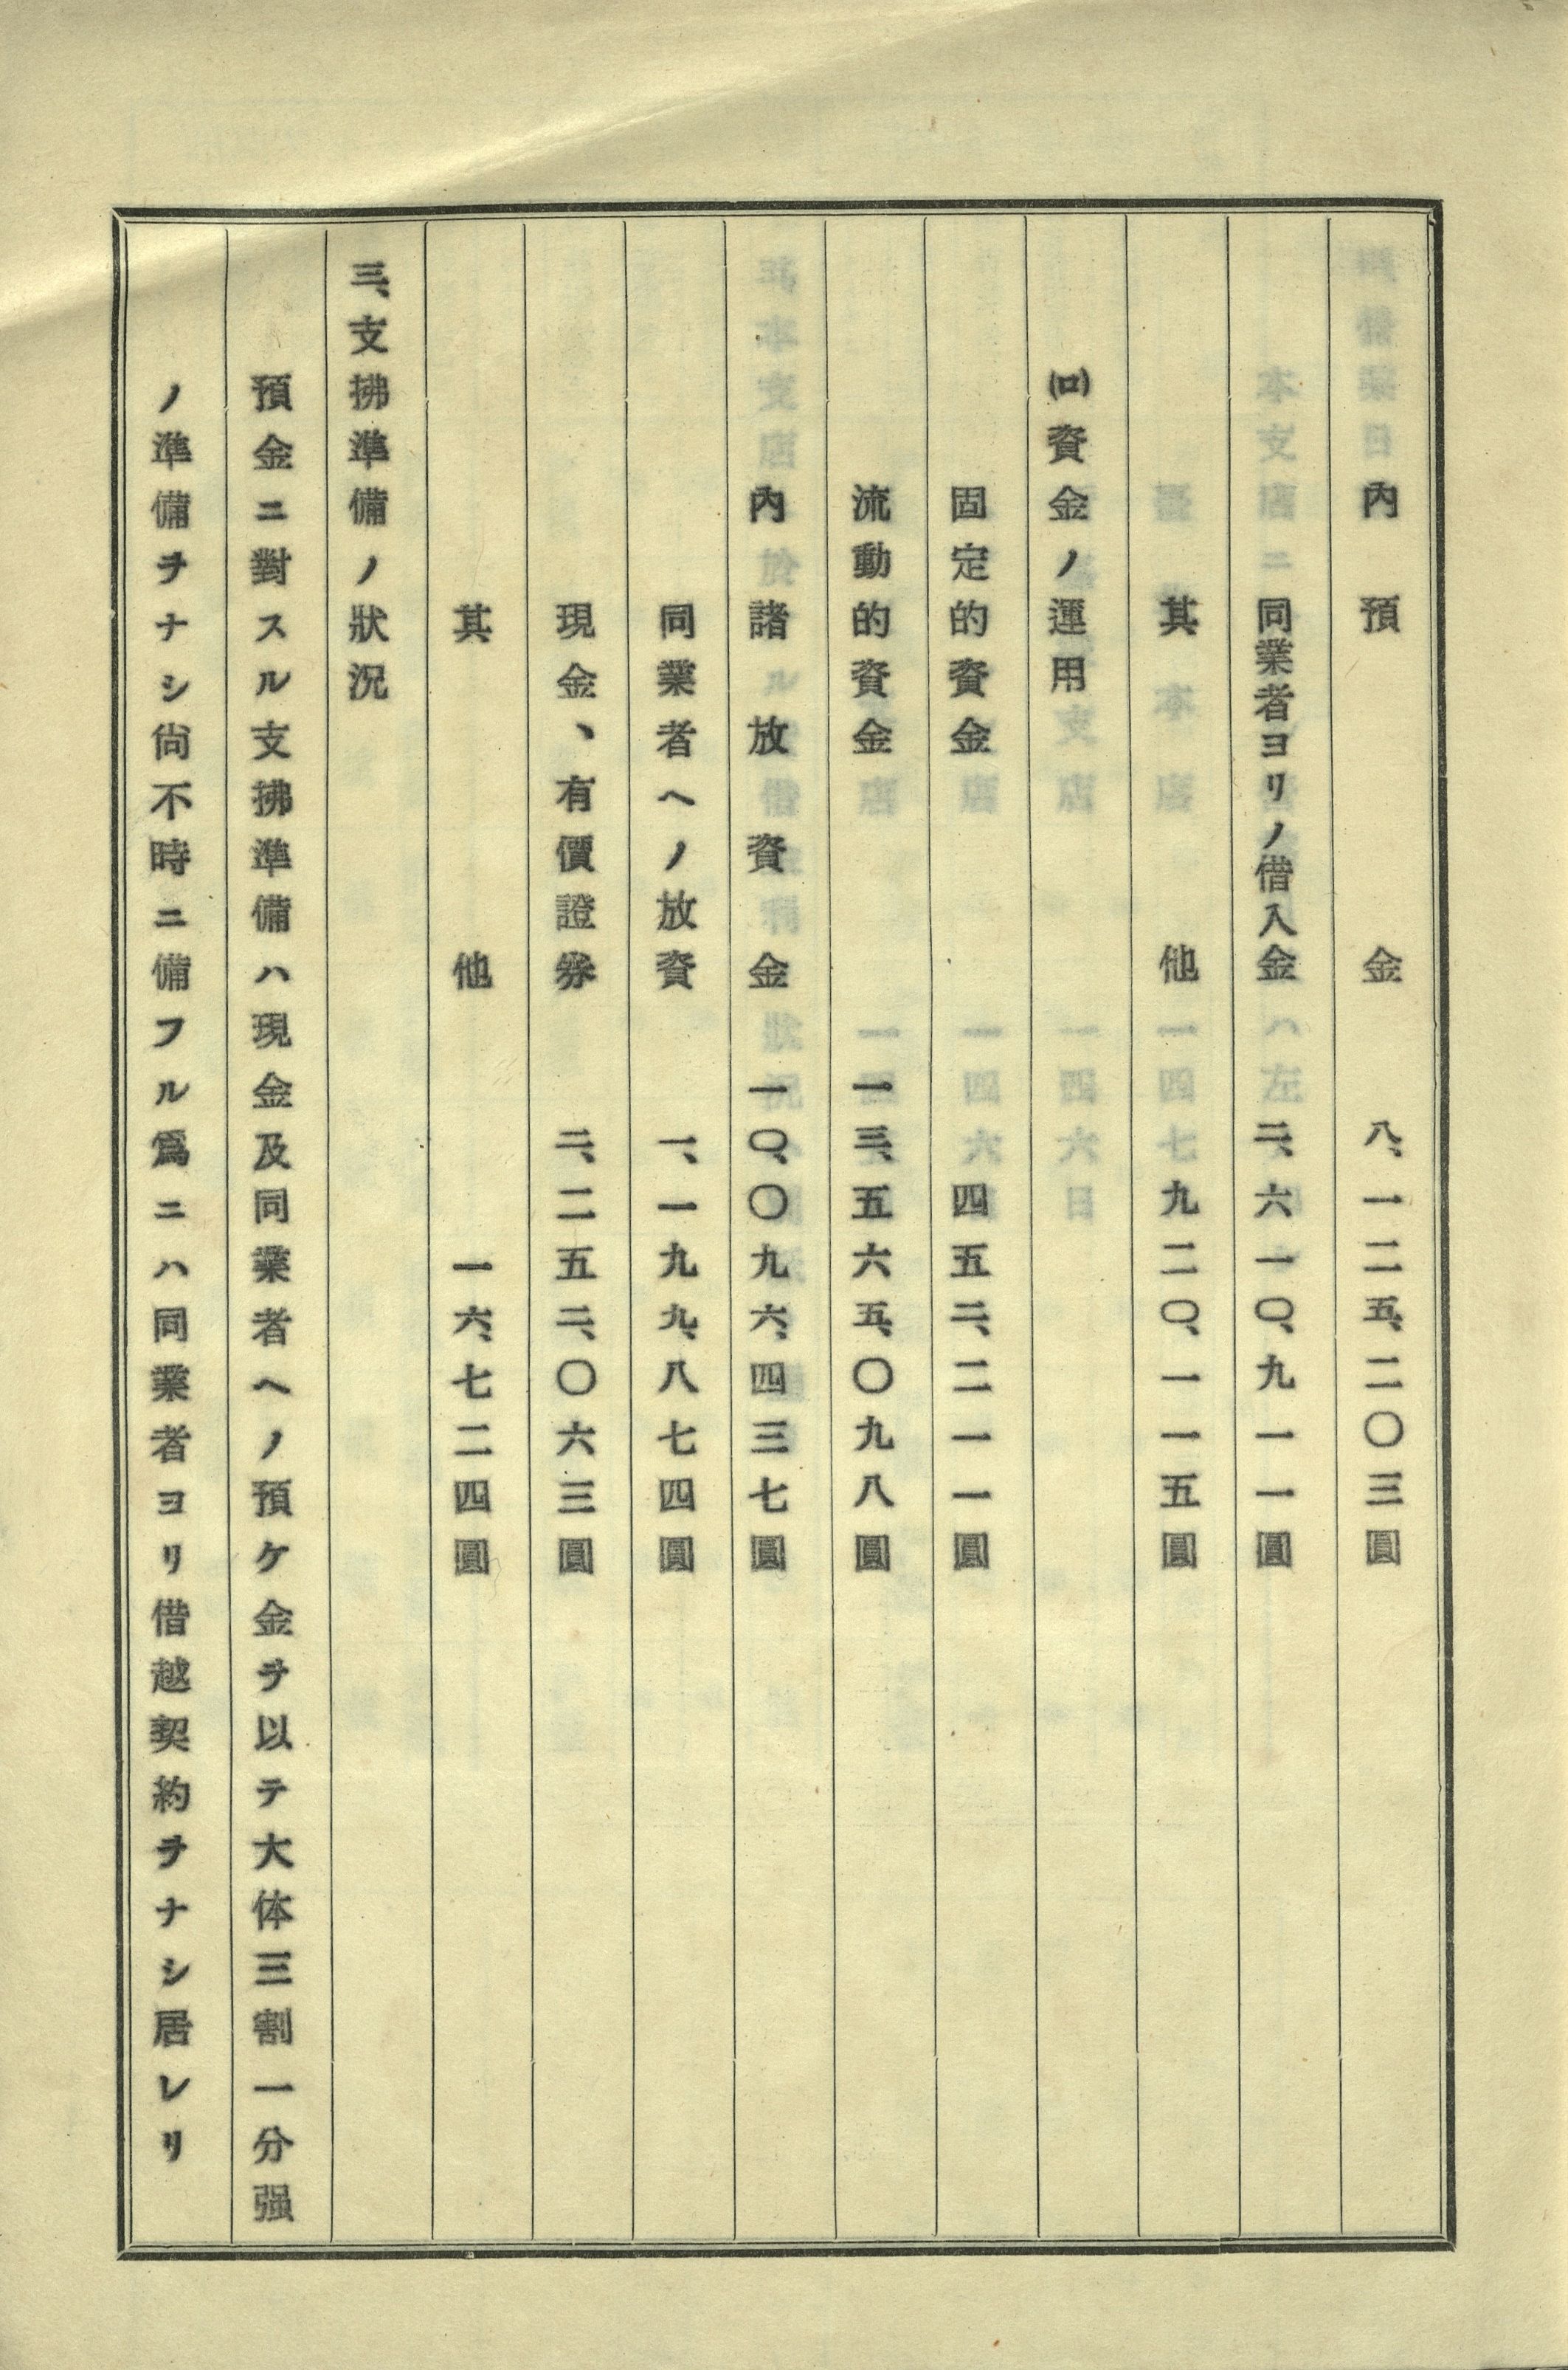 內預金 八、一二五、二〇三圓
同業者ヨリノ借入金 二、六一〇、九一一圓
其他 九二〇、一一五圓
(ロ)資金ノ運用
固定的資金 四五二、二一一圓
流動的資金 一三、五六五、〇九八圓
內諸放資金 一〇、〇九六、四三七圓
同業者ヘノ放資 一、一九九、八七四圓
現金、有價證券 二、二五二、〇六三圓
其他 一六、七二四圓
三、支拂準備ノ狀況
預金ニ對スル支拂準備ハ現金及同業者ヘノ預ケ金ヲ以テ大体三割一分强
ノ準備ヲナシ尙不時ニ備フル爲ニハ同業者ヨリ借越契約ヲナシ居レリ